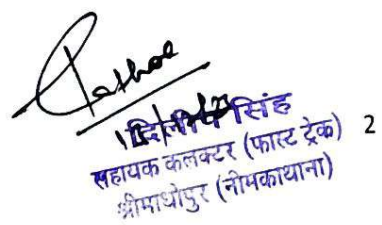 सिंह
सहायक कलक्टर (फास्ट ट्रेक) 2
श्रीमाधोपुर (नीमकाथाना)